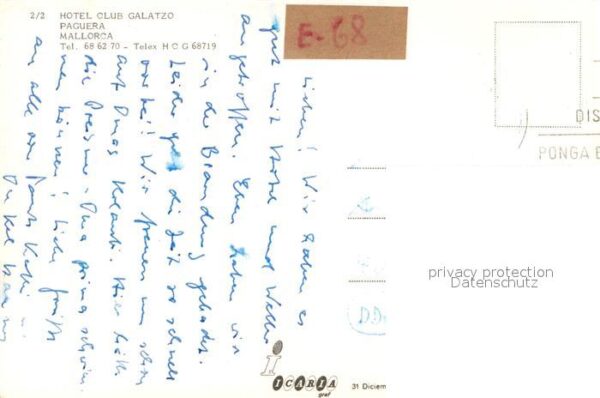 2/2 HOTEL CLUB GALATZO
PAGUERA
MALLORCA
Tel. 68 62 70 - Telex H C G 68719
E-68
DIS
PONGA E
Lieben! Wir haben es
gut mit Hotel und Wetter
angetroffen. Eben haben wir
in der Brandung gebadet.
Leider geht die Zeit so schnell
vorbei! Wir freuen uns schon
auf Omas
die Preise Oma prima
men können! Liebe Grüße
an alle von Tante
Onkel
privacy protection
Datenschutz
DD
i
ICARIA
graf
31 Diciem